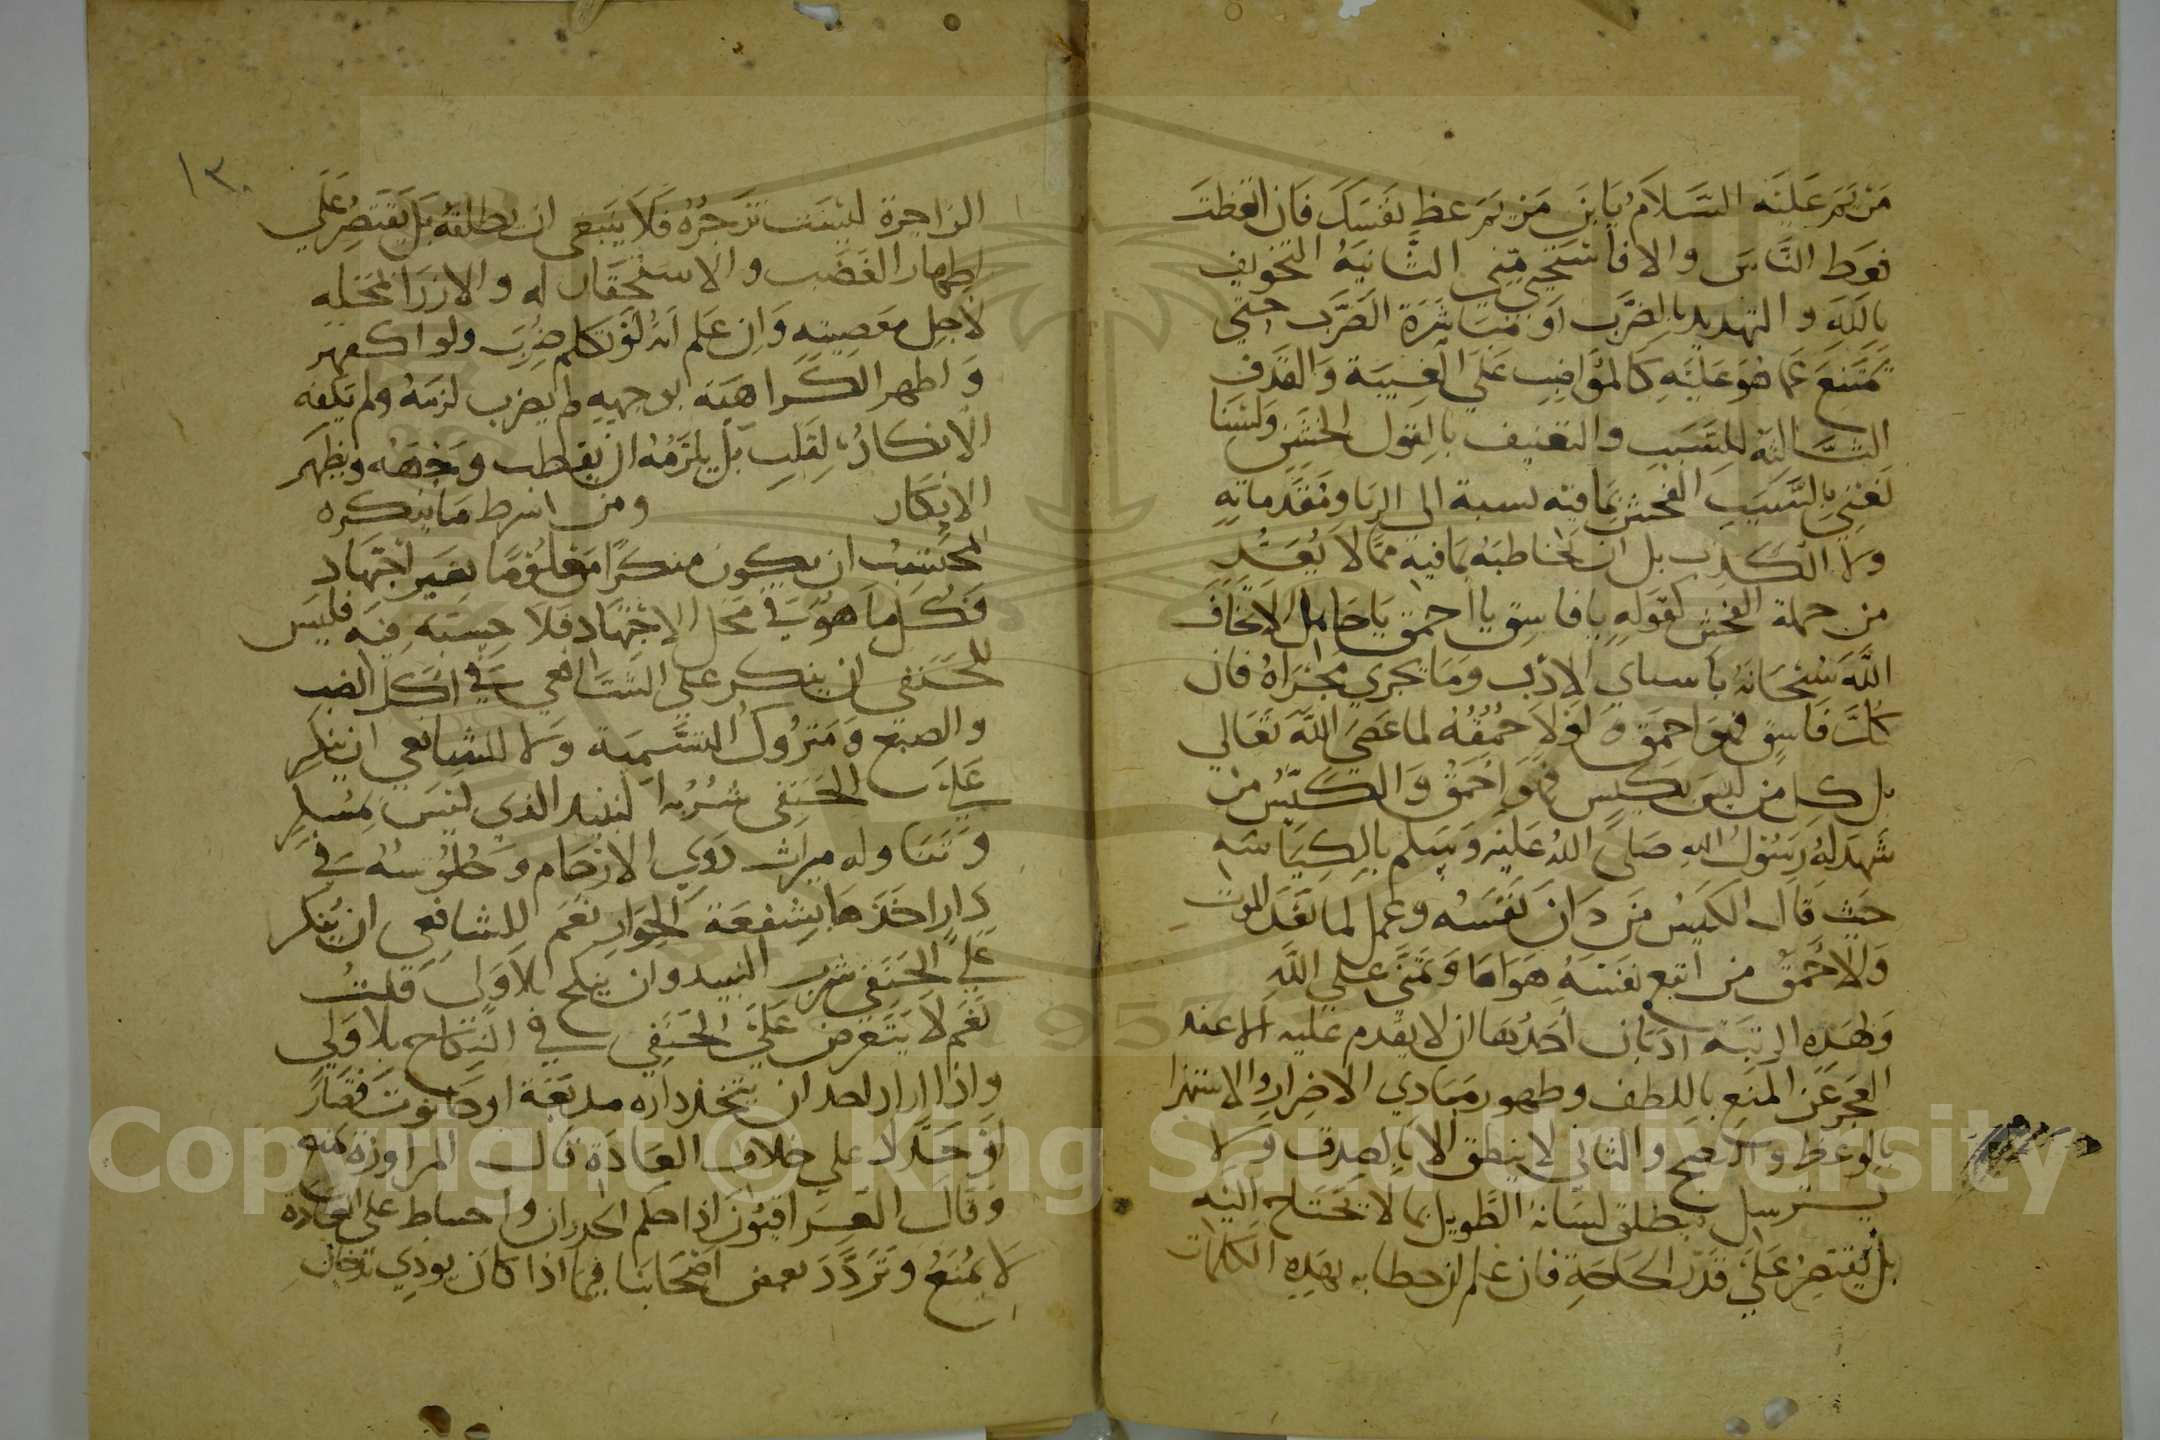 مَرْيَمَ عَلَيْه السَّلاَمُ يَابْنَ مَرْيَمَ عظ نفسَكَ فَإن اتعَظتَ
فعظ النَّاسَ والا فاستحيي مِنِّي الثَّانيةُ التخويف
بِاللَّهِ والتهديد بالضَّرب أو مُبَاشَرَة الضَّرب حتي
يَمتَنِعَ عَمَّا هُوَ عَليَه كَالمُوَاظِبِ عَلَي الغِيبَة وَالقذف
الثَّالثة للسَّبِّ والتعنيف بالقول الخَشِنِ ولسنا
نَعْنِي بالسَّبِّ الفحش بمَا فيه نسبة الي الزنا ومُقَدماتِهِ
ولا الكذب بل ان يخاطبَهُ بمَا فيه ممَّا لا يُعَدُّ
من جملة الفحش كقولِهِ يا فاسِق يا احمق يَا جَاهِل ألا تَخَافُ
اللَّهَ سُبْحَانَهُ يا سياي الادب ومَا يجري مَجْرَاهُ فان
كُلَّ فَاسِقٍ فهوَ احمَق وَلولا حُمْقُهُ لما عَصَي اللَّهَ تَعَالي
بل كل من ليسَ بكيس فهوَ احْمَقْ وَالكيّسُ مَنْ
شهدَ لهُ رَسُولُ اللهِ صَلي اللهُ عَليْه وَسَلم بالكِيَاسَه
حيث قَالَ الكَيسُ مَن دَانَ نَفسَهُ وعمل لما بَعْدَ الموت
وَالأحْمَقُ من اتبع نفسَهُ هَوَاهَا وتمنَّي علي اللَّهِ
وَلهَذِهِ الرتبَة أدبَانِ أحَدُهَا ان لا يقدم عليه الا عند
العجز عَن المَنع باللطف وظهور مَبادي الاضرار والاستهزا
بالوعظ والنصح والثاني لا ينطق الا بالصدق وَلا
يسترسل فيطلق لسَانهُ الطَّويل بما لا يَحتَاج اليْه
بل يَقتَصِرُ عَلَي قَدْرِ الحَاجَةِ فان علم ان خطابه بهَذِهِ الكلمات
١٣٠
الزاجرة ليسَت تزجُرُهُ فَلا يَنبَغي ان يطلقهُ بَل يَقتَصِرُ عَلَي
اظهار الغَضَب والاستحقار له والازرَا بمَحَله
لأجل معصيته وَإن عَلم أنهُ لَوْ تكلم ضُرِبَ ولو اكفهر
وَاظهر الكَرَاهيَة بوجهِهِ لم يضرب لزمَهُ ولم يَكفه
الانكارُ بِالقَلبِ بَل يلزَمُهُ ان يُقَطب وَجْهَهُ ويُظهِرَ
الإنكار ومن شرط مَا ينكره
المحتسِبُ ان يكون منكرًا مَعْلُومًا بِغير اجتهاد
فَكُل مَا هُوَ في محَل الاجتِهَاد فلا حِسبَة فِيه فليس
للحَنَفي ان ينكر علي الشافعي في اكل الضب
والضبع ومَترُوك التَّسْمِيَة وَلا للشافعي ان ينكِر
عَلي الحَنَفي شُرْبهُ النبيذ الذي ليسَ بمُسكرٍ
وَتَنَاوله ميراث ذوي الارحَام وَجُلُوسهُ في
دارٍ اخَذَهَا بشفعَة الجِوَارِ نَعَم للشافِعِي ان يُنكر
علي الحَنَفي شرب النبيذ وان ينكح بلا وَلي قلتُ
نَعَم لا يَتَعَرض عَلي الحَنَفِي في النِّكَاح بلا وَلي
واذا اراد احد ان يتخذ داره مدبغة او حَانوت قصَّار
او حَدَّاد علي خلاف العَادَة قال المراوزة يمنع
وقال العِرَاقيُّونَ اذا احكم الجدران واحتاط علي العَادَة
لا يُمْنَعُ وَتَرَدَّدَ بعض اصْحَابنَا فيما اذا كَان يوذي بدخان